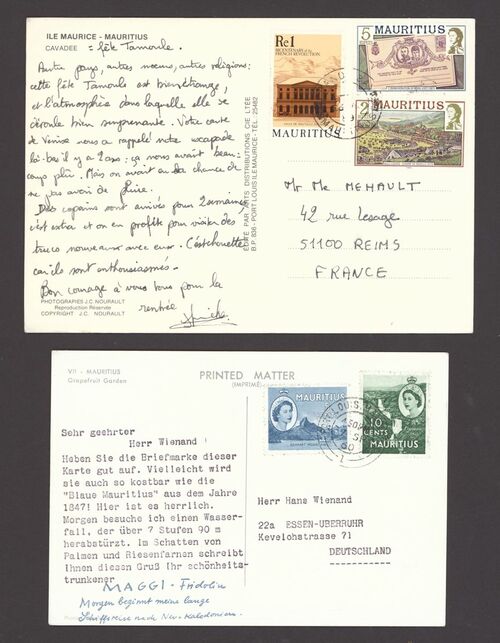 ILE MAURICE - MAURITIUS
CAVADEE = fête Tamoule.
Autre pays, autres moeurs, autres religions:
cette fête Tamoule est bien étrange,
et l'atmosphère dans laquelle elle se
déroule bien surprenante. Votre carte
de Venise nous a rappelé notre escapade
là-bas il y a 2 ans: ça nous avait beau-
coup plu. Mais on avait eu la chance de
ne pas avoir de pluie.
Des copains sont arrivés pour 2 semaines,
c'est extra et on en profite pour visiter des
trucs nouveaux avec eux. C'est chouette
car ils sont enthousiasmés.
Bon courage à vous tous pour la
rentrée
PHOTOGRAPIES J.C. NOURAULT
Reproduction Réservée
COPYRIGHT J.C. NOURAULT
ÉDITÉ PAR ARTS DISTRIBUTIONS CIE LTÉE
B.P. 836 - PORT LOUIS ILE MAURICE - TÉL. 25482
Re1
BICENTENARY of the
FRENCH REVOLUTION
MAURITIUS
5 MAURITIUS
2 MAURITIUS
Mr Me MEHAULT
42 rue Lesage
51100 REIMS
FRANCE
VII - MAURITIUS
Grapefruit Garden
PRINTED MATTER
(IMPRIMÉ)
MAURITIUS
10
CENTS
MAURITIUS
Sehr geehrter
Herr Wienand !
Heben Sie die Briefmarke dieser
Karte gut auf. Vielleicht wird
sie auch so kostbar wie die
"Blaue Mauritius" aus dem Jahre
1847! Hier ist es herrlich.
Morgen besuche ich einen Wasser-
fall, der über 7 Stufen 90 m
herabstürzt. Im Schatten von
Palmen und Riesenfarnen schreibt
Ihnen diesen Gruß Ihr schönheits-
trunkener
MAGGI - Fridolin
Morgen beginnt meine lange
Schiffsreise nach Neu-Kaledonien.
Herr Hans Wienand
22a ESSEN-UBERRUHR
Kevelohstrasse 71
DEUTSCHLAND